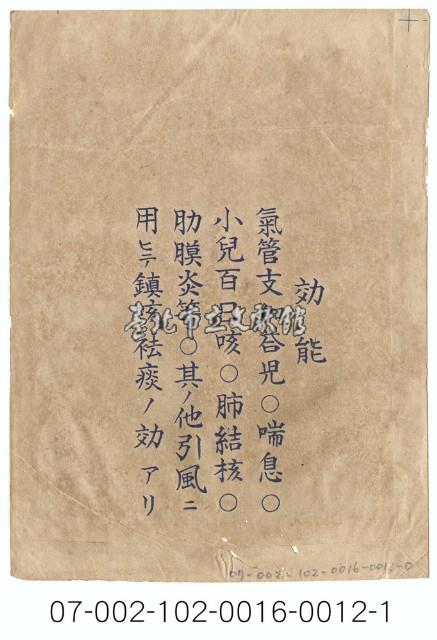 効能
氣管支加答児○喘息○
小兒百日咳○肺結核○
肋膜炎等○其ノ他引風ニ
用ヒテ鎮咳袪痰ノ効アリ
臺北市立文獻館
07-002-102-0016-0012-0
07-002-102-0016-0012-1